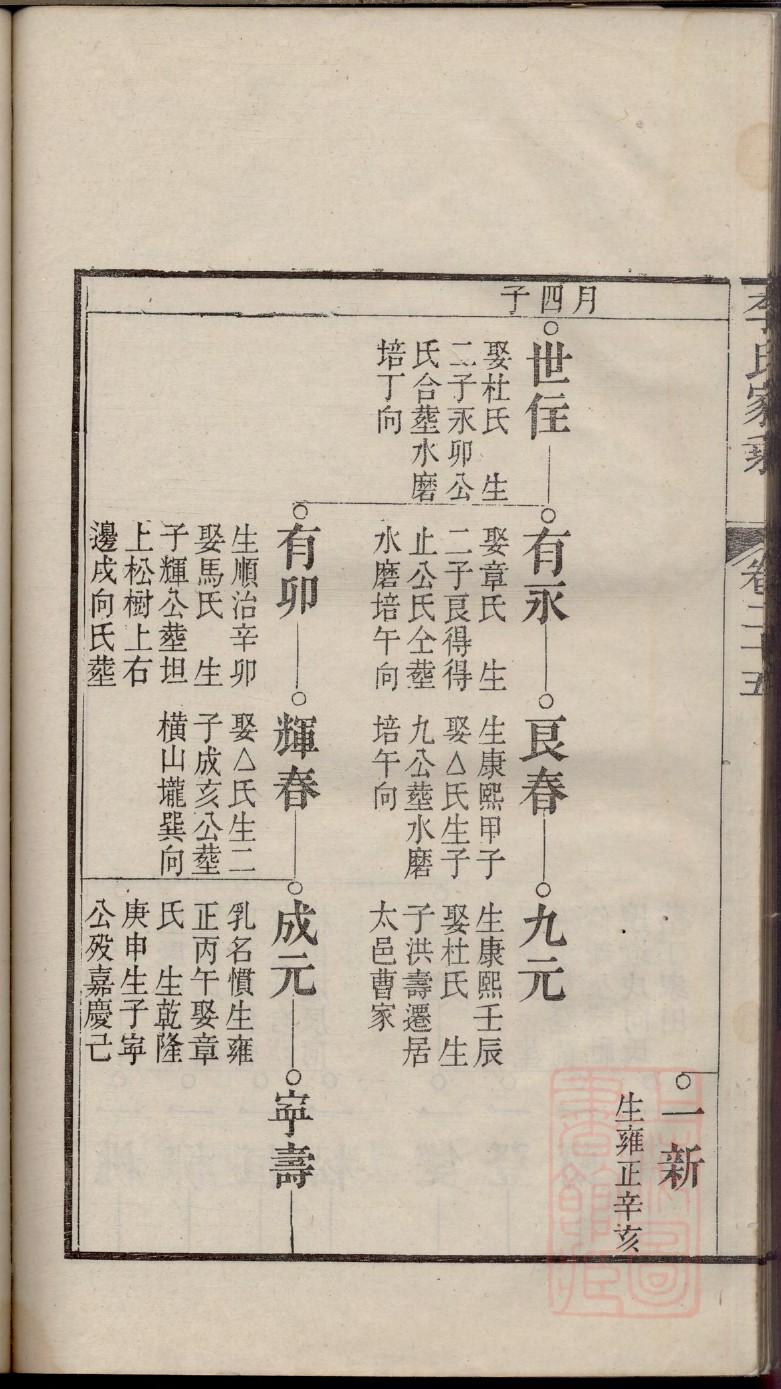 李氏家乘
卷二十五
月四子
一新
生雍正辛亥
世住
娶杜氏　生
二子永卯公
氏合塟水磨
培丁向
有永
娶章氏　生
二子良得得
止公氏仝塟
水磨培午向
良春
生康熙甲子
娶△氏生子
九公塟水磨
培午向
九元
生康熙壬辰
娶杜氏　生
子洪壽遷居
太邑曹家
有卯
生順治辛卯
娶馬氏　生
子輝公塟坦
上松樹上右
邊戌向氏塟
輝春
娶△氏生二
子成亥公塟
橫山壠巽向
成元
乳名慣生雍
正丙午娶章
氏　生乾隆
庚申生子寕
公歿嘉慶己
寕壽